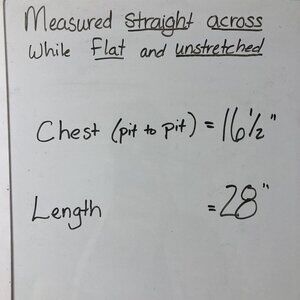 Measured straight across
While flat and unstretched
Chest (pit to pit) = 16½"
Length = 28"